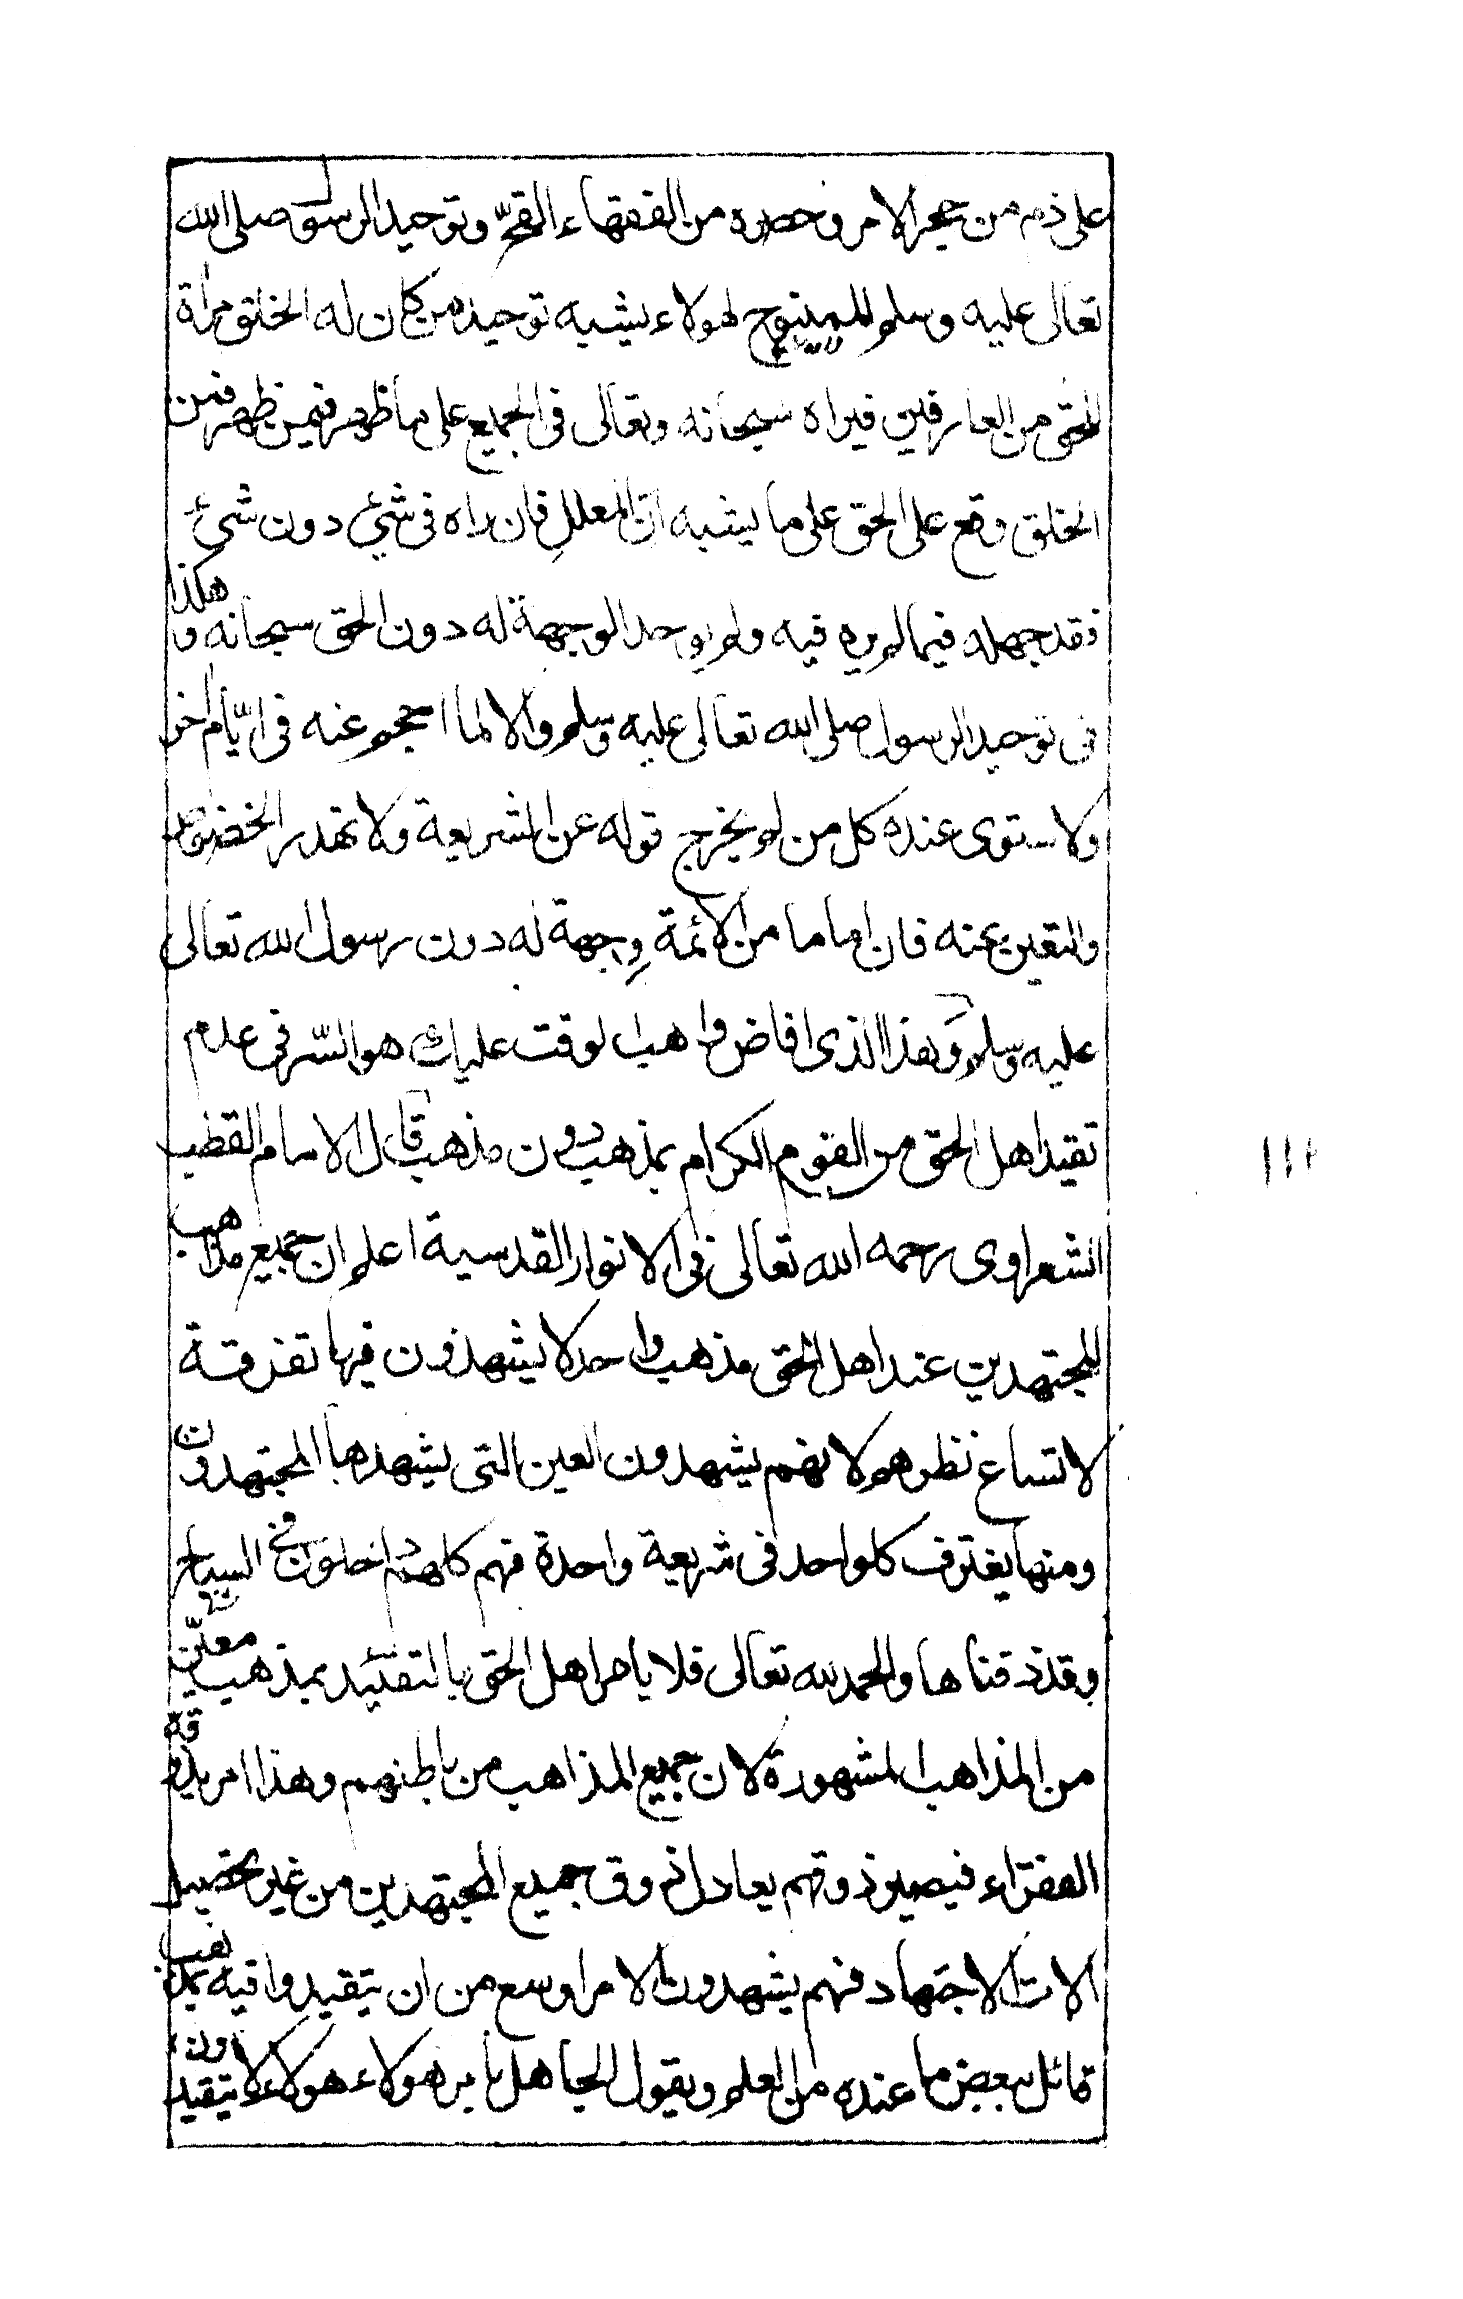 على ذم من حجر الامر وحصره من الفقهاء وتوحيد الرسول صلى الله
تعالى عليه وسلم للمتبوع لهولاء يشبه توحيد من كان له الخلق مراة
للحق من العارفين فيراه سبحانه وتعالى فى الجميع على ما ظهر فيمن ظهر فمن
الخلق وقع على الحق على ما يشبه ان المعلل فان راه فى شىء دون شىء
فقد جهله فيما لم يره فيه ولم يوحد الوجهة له دون الحق سبحانه وهكذا
فى توحيد الرسول صلى الله تعالى عليه وسلم والا لما احجم عنه فى ايّام اخر
ولاستوى عنده كل من لم يخرج قوله عن الشريعة ولا تهدر الخصوص
والتعين عنه فان اماما من الائمة وجهة له دون رسول الله تعالى
عليه وسلم وهذا الذى افاض واهب الوقت عليك هو السّر فى عدم
تقيد اهل الحق من القوم الكرام بمذهب دون مذهب قال الامام القطب
الشعراوى رحمه الله تعالى فى الانوار القدسية اعلم ان جميع مذاهب
المجتهدين عند اهل الحق مذهب واحد لا يشهدون فيها تفرقة
لاتساع نظرهم لانهم يشهدون العين التى يشهدها المجتهدون
ومنها يغترف كل واحد فى شريعة واحدة فهم كلهم داخلون فى السياج
وقد ذقناها والحمد لله تعالى فلا يامر اهل الحق بالتقئيد بمذهب معيّن
من المذاهب المشهورة لان جميع المذاهب من باطنهم وهذا امر يذوقه
الفقراء فيصير ذوقهم يعادل ذوق جميع المجتهدين من غير تحصيل
الات الاجتهاد فهم يشهدون الامر اوسع من ان يتقيدوا فيه بمذهب
قائل ببعض ما عنده من العلم ويقول الجاهل بامر هولاء هولاء لا يتقيدون
١١١